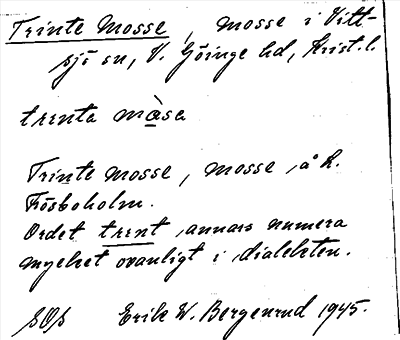 Trinte mosse, mosse i Vitt-
sjö sn, V. Göinge hd, Krist. l.
trenta màsa
Trinte mosse, mosse, å k.
Frösboholm.
Ordet trent, annars numera
mycket ovanligt i dialekten.
SOS Erik W. Bergenrud 1945.